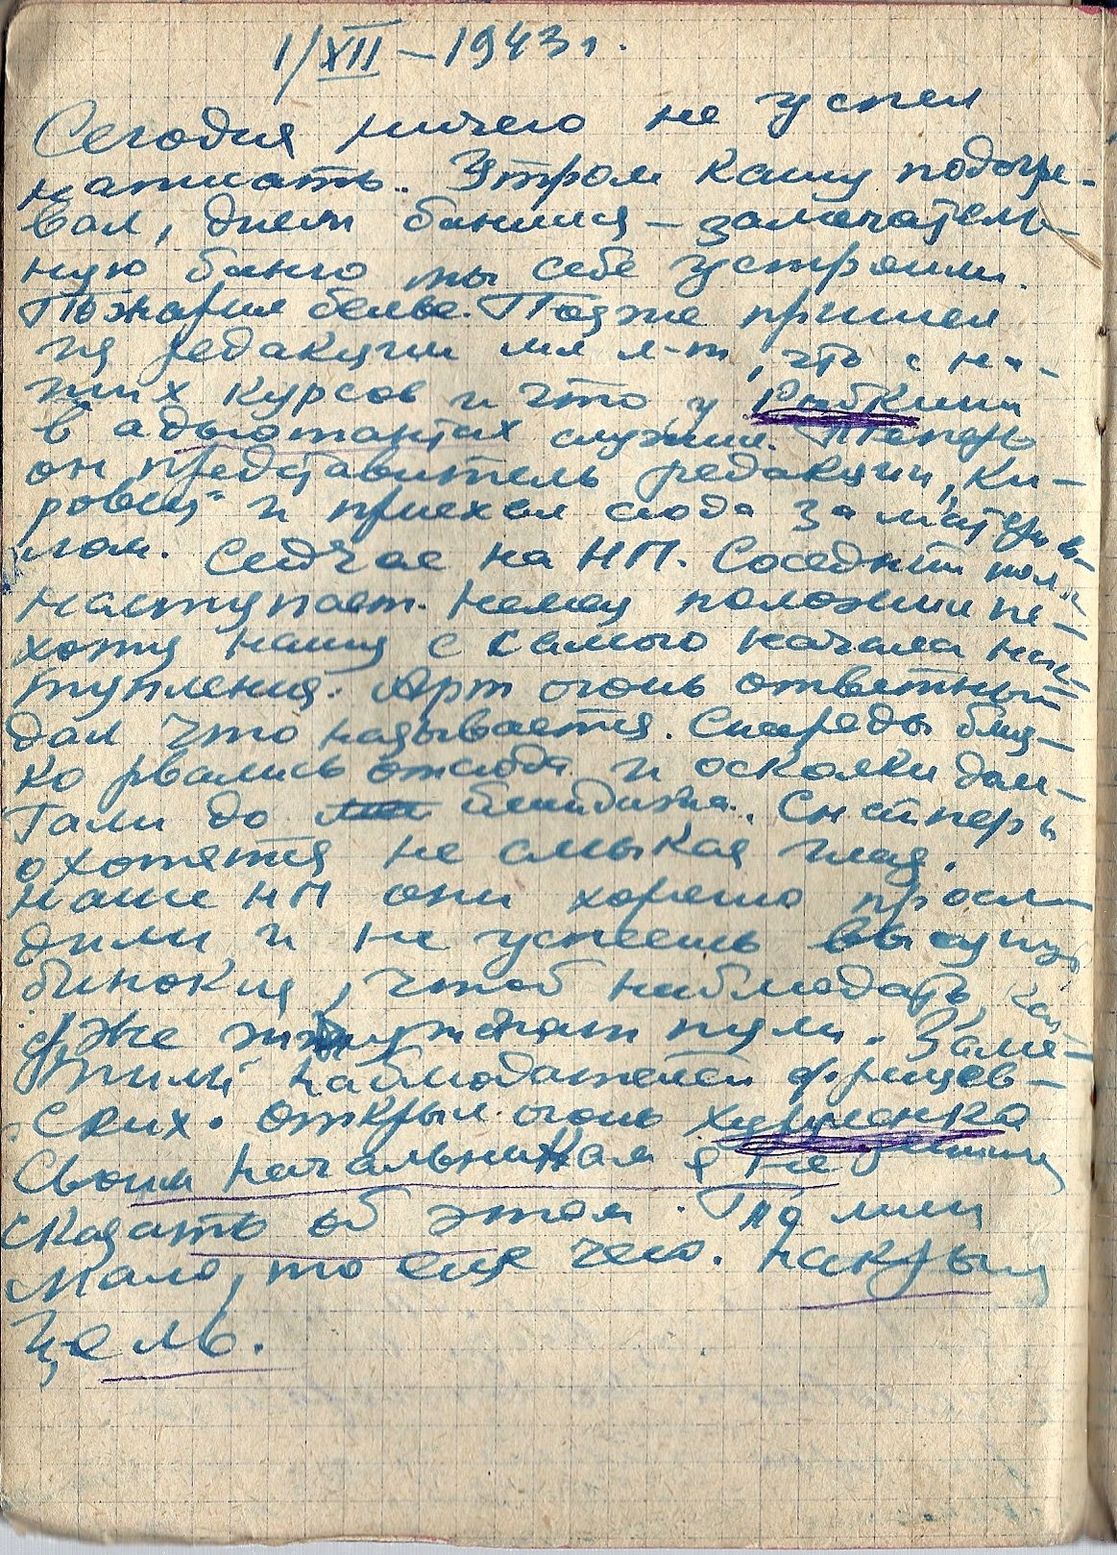 1/XII – 1943 г.
Сегодня ничего не успел
написать. Утром кашу подогре-
вал, днем банился – замечатель-
ную баню мы себе устроили.
Пожарил белье. Позже пришел
из редакции мл л-т, что с на-
ших курсов и что у Рыбкина
в адъютантах служил. Теперь
он представитель редакции „Ки-
ровец" и приехал сюда за материа-
лом. Сейчас на НП. Соседний полк
наступает. Немец положил пе-
хоту нашу с самого начала нас-
тупления. Арт огонь ответный
дал что называется. Снаряды близ-
ко рвались отсюда и осколки доле-
тали до блиндажа. Снайперы
охотятся не смыкая глаз.
Наше НП они хорошо просле
дили и не успеешь высунуть
бинокля, чтоб наблюдать, как
уже жужжат пули. Заме-
тили наблюдателей фрицев-
ских. Открыл огонь
Своим начальникам я не решил
сказать об этом. По
мало, то еще чего. Накрыл
цель.